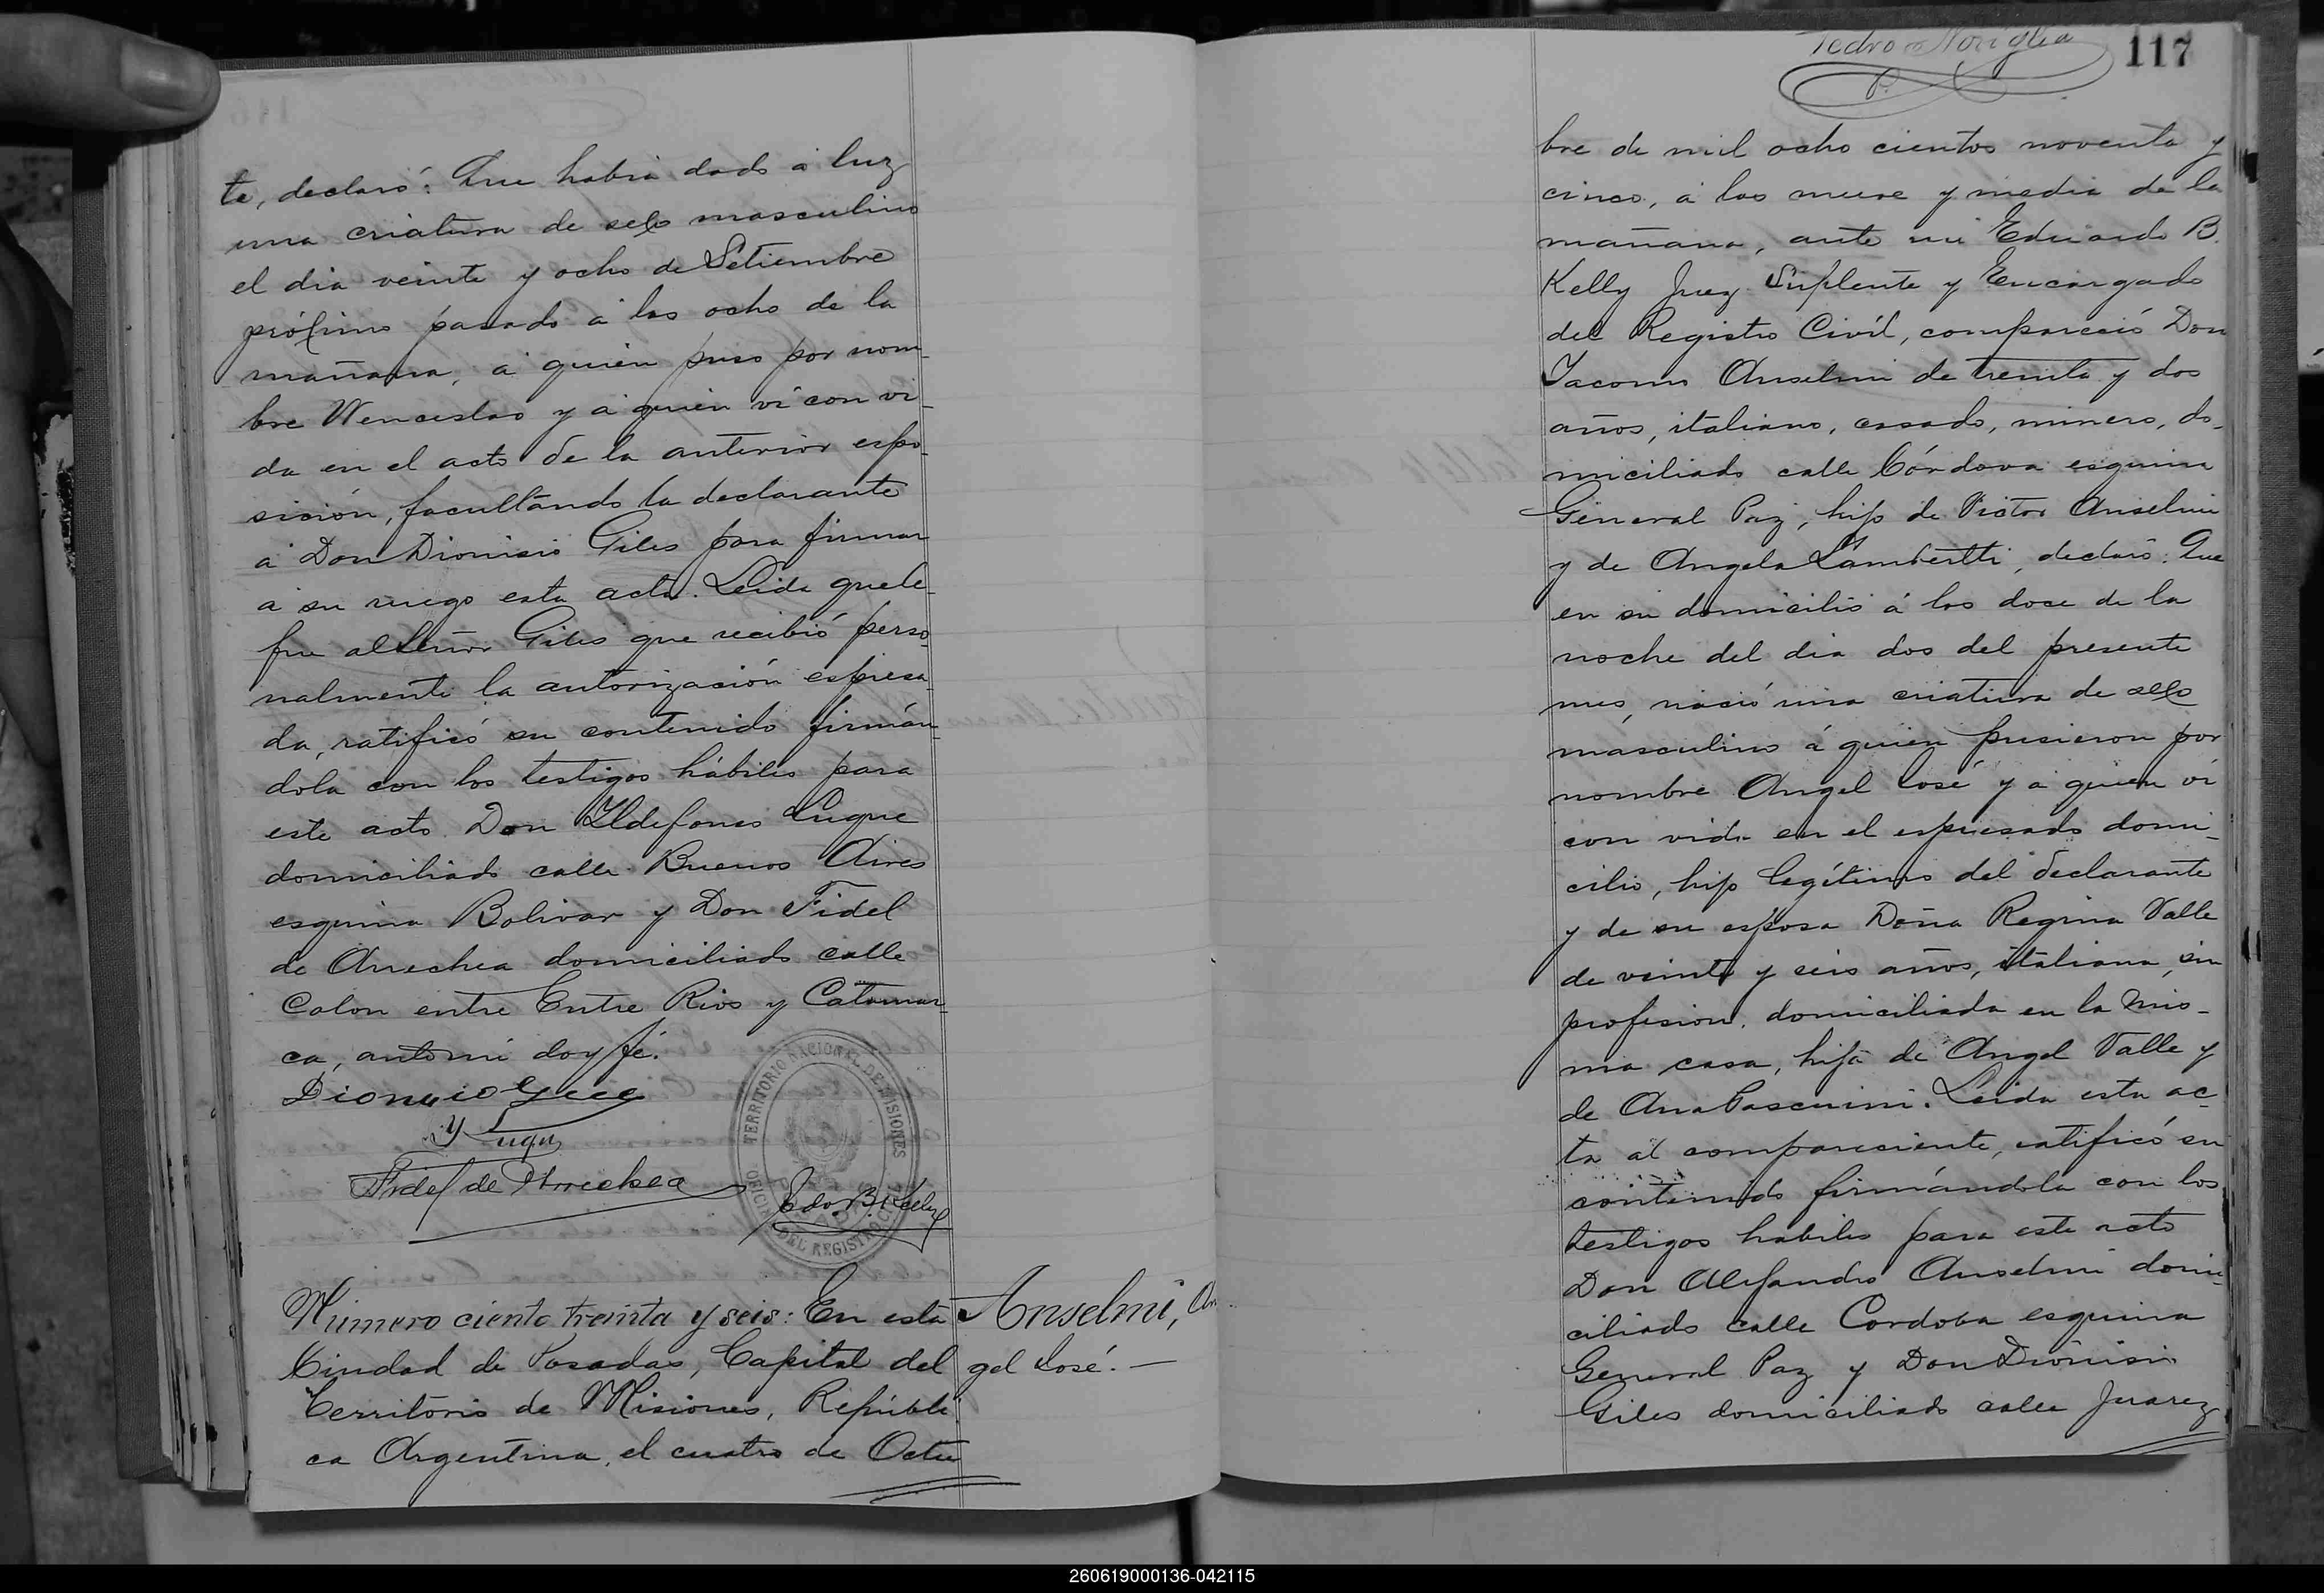 te, declaró: Que habia dado á luz
una criatura de sexo masculino
el dia veinte y ocho de Setiembre
próximo pasado á las ocho de la
mañana, á quien puso por nom-
bre Wenceslao y á quien ví con vi-
da en el acto de la anterior espo-
sición, facultando la declarante
á Don Dionisio Giles para firmar
á su ruego esta acta. Leida que le
fue al Señor Giles que recibió perso-
nalmente la autorización espresa-
da, ratificó su contenido firmán-
dola con los testigos hábiles para
este acto Don Ildefonso Luque
domiciliado calle Buenos Aires
esquina Bolivar y Don Fidel
de Arrechea domiciliado calle
Colon entre Entre Rios y Catamar-
ca, ante mí doy fé.
Dionisio Giles
Y Luque
Fidel de Arrechea
Edo. B. Kelly
TERRITORIO NACIONAL DE MISIONES
OFICINA DEL REGISTRO CIVIL
Número ciento treinta y seis: En esta
Ciudad de Posadas, Capital del
Territorio de Misiones, Repúbli-
ca Argentina, el cuatro de Octu
Anselmi, An
gel José. —
Pedro Noriglia
117
bre de mil ocho cientos noventa y
cinco, á las nueve y media de la
mañana, ante mi Eduardo B.
Kelly Juez Suplente y Encargado
del Registro Civíl, compareció Don
Iacomo Anselmi de treinta y dos
años, italiano, casado, minero, do-
miciliado calle Córdova esquina
General Paz, hijo de Victor Anselmi
y de Angela Lambertti, declaró: Que
en su domicilio á las doce de la
noche del dia dos del presente
mes, nació una criatura de sexo
masculino á quien pusieron por
nombre Angel José y á quien ví
con vida en el espresado domi-
cilio, hijo legítimo del declarante
y de su esposa Doña Regina Valle
de veinte y seis años, italiana, sin
profesion, domiciliada en la mis-
ma casa, hija de Angel Valle y
de Ana Pascurini. Leida esta ac-
ta al compareciente, ratificó su
contenido firmándola con los
testigos habiles para este acto
Don Alejandro Anselmi domi-
ciliado calle Cordoba esquina
General Paz y Don Dionisio
Giles domiciliado calle Juarez
260619000136-042115